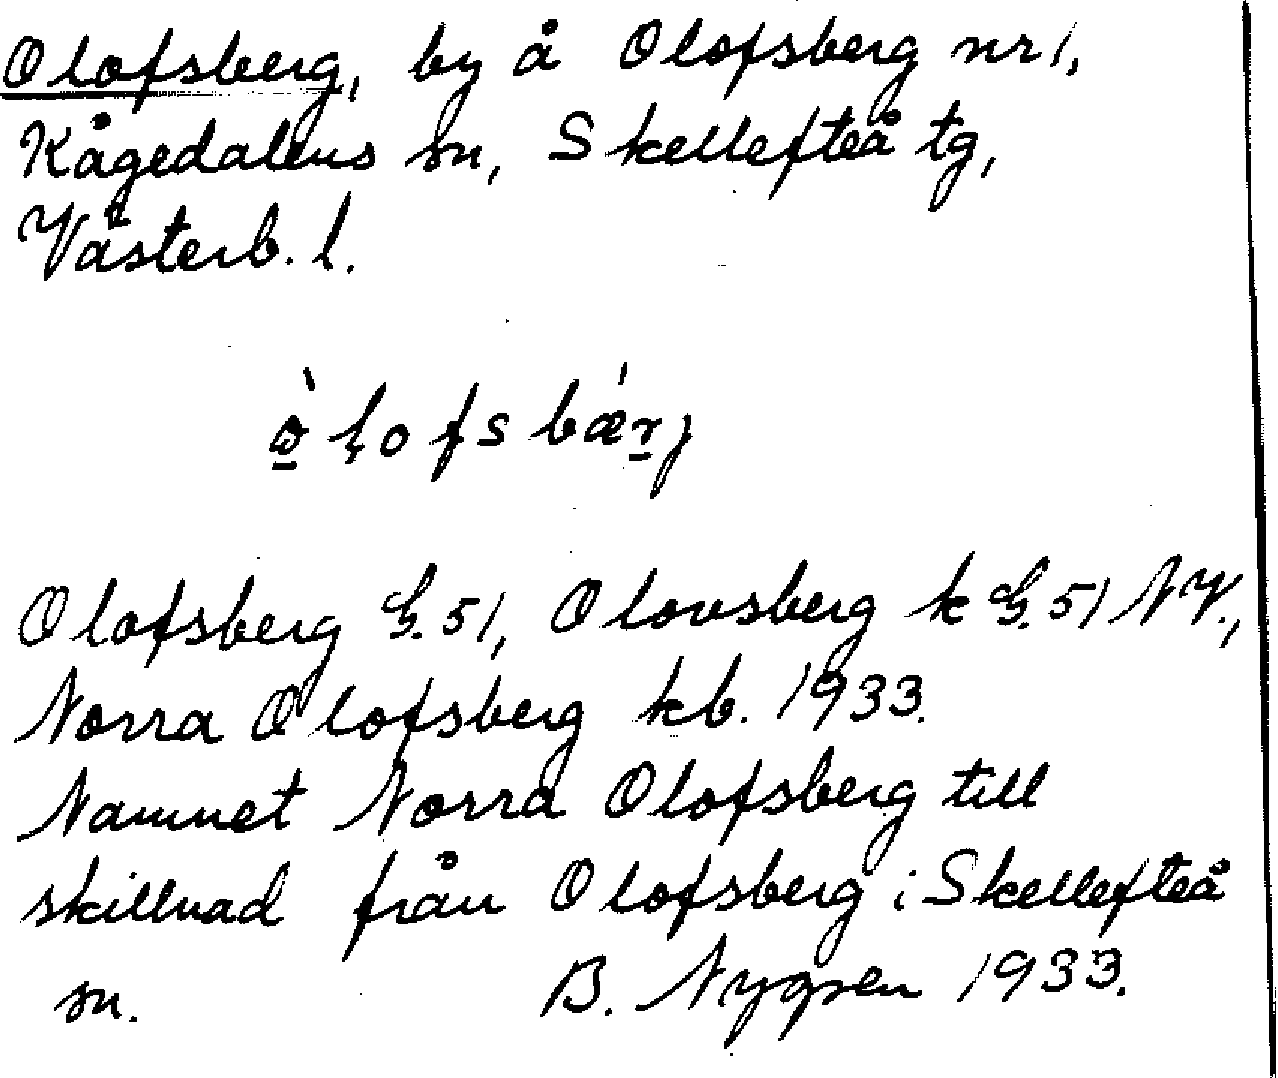 Olofsberg, by å Olofsberg nr 1,
Kågedalens sn, Skellefteå tg,
Västerb. l.
Olofsberg G. 51, Olovsberg k G. 51 NV.,
Norra Olofsberg kb. 1933.
Namnet Norra Olofsberg till
skillnad från Olofsberg i Skellefteå
sn. B. Nygren 1933.